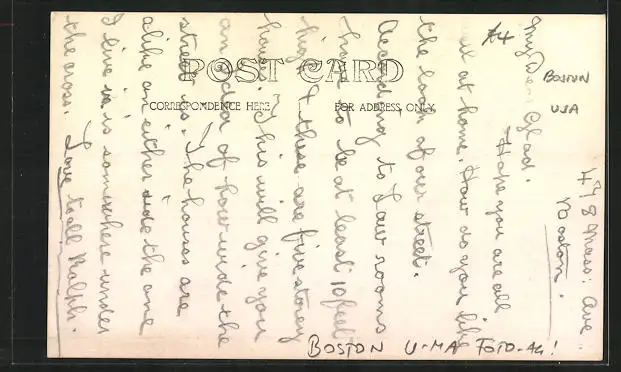 POST CARD
CORRESPONDENCE HERE
FOR ADDRESS ONLY
A4
BOSTON
USA
478 Mass: Ave.
Boston.
My Dear Glad.
Hope you are all
well at home. How do you like
the look of our street.
According to Law rooms
have to be at least 10 feet
high & these are five storey
houses. This will give you
an idea of how wide the
street is. The houses are
alike on either side the one
I live in is somewhere under
the cross. Love to all Ralph.
BOSTON U-MA FOTO-AK!